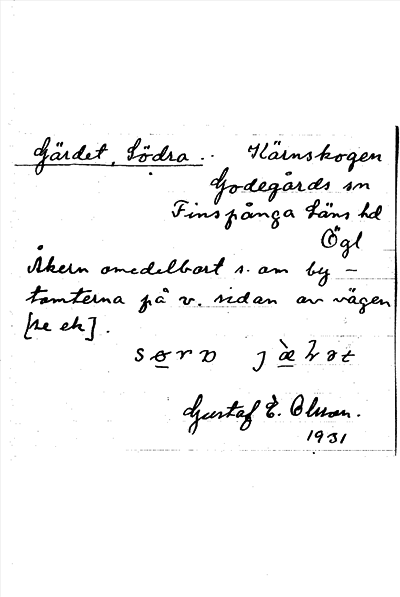 Gärdet, Södra .. Kärnskogen
Godegårds sn
Finspånga läns hd
Ögl
Åkern omedelbart s. om by-
tomterna på v. sidan av vägen
[se ek].
Gustaf E. Olsson.
1931